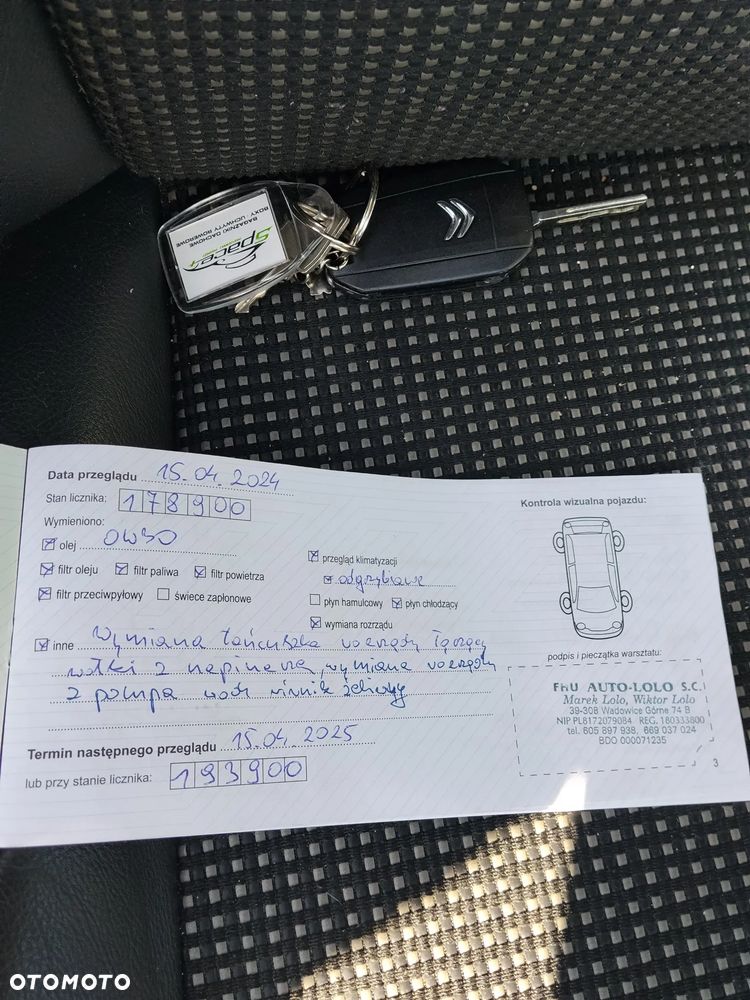 BAGAŻNIKI DACHOWE
BOXY, UCHWYTY ROWEROWE
Space+
Data przeglądu 15.04.2024
Stan licznika: 178900
Wymieniono:
olej 0W30
filtr oleju filtr paliwa filtr powietrza
filtr przeciwpyłowy świece zapłonowe
przegląd klimatyzacji
+ odgrzybianie
płyn hamulcowy płyn chłodzący
wymiana rozrządu
inne Wymiana łańcuszka rozrządu łączący
wałki z napinaczem, wymiana rozrządu
z pompą wody silnik
Termin następnego przeglądu 15.04.2025
lub przy stanie licznika: 193900
Kontrola wizualna pojazdu:
podpis i pieczątka warsztatu:
FHU AUTO-LOLO S.C.
Marek Lolo, Wiktor Lolo
39-308 Wadowice Górne 74 B
NIP PL8172079084 REG. 180333800
tel. 605 897 938, 669 037 024
BDO 000071235
3
OTOMOTO